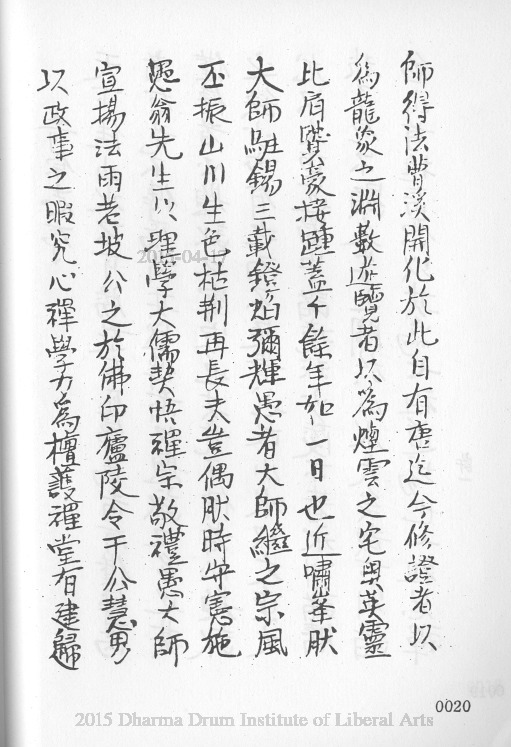 師得法曹溪開化於此自有唐迄今修證者以
為龍象之淵藪遊覽者以為煙雲之宅奧英靈
比肩賢豪接踵蓋千餘年如一日也近嘯峯肰
大師駐錫三載鐙焰彌輝愚者大師繼之宗風
丕振山川生色枯荆再長夫豈偶肰時守憲施
愚翁先生以理學大儒契悟禪宗敬禮愚大師
宣揚法雨老坡公之於佛印廬陵令于公慧男
以政事之暇究心禪學力為檀護禪堂有建歸
2015-04-17
0020
2015 Dharma Drum Institute of Liberal Arts